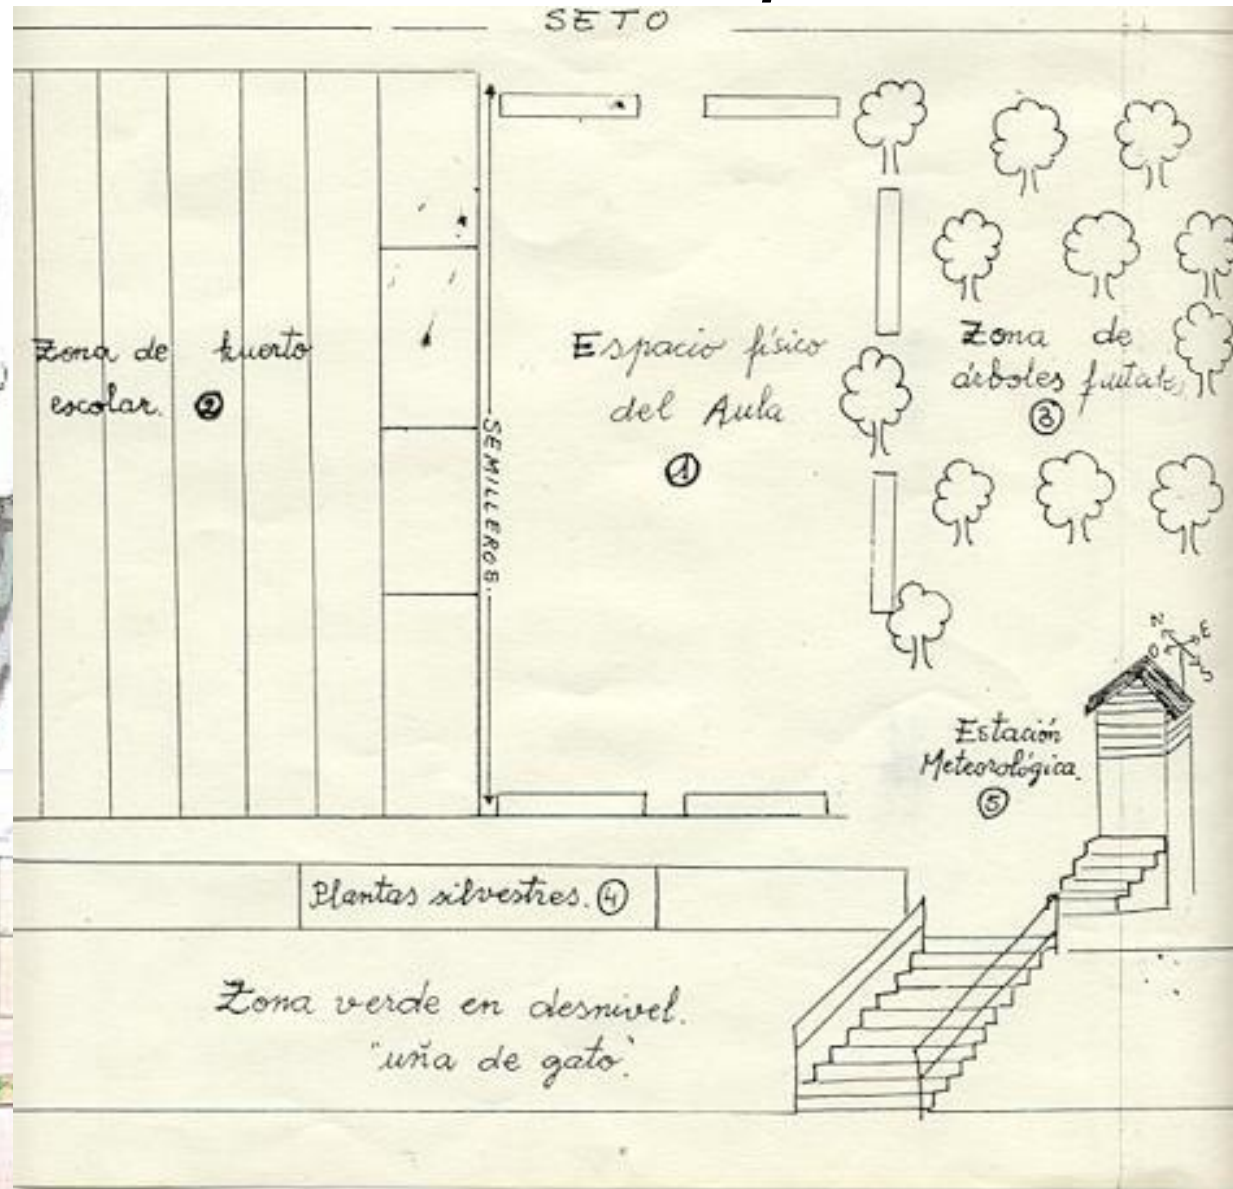 SETO
Zona de huerto
escolar. ②
SEMILLEROS.
Espacio físico
del Aula
①
Zona de
árboles frutales
③
N
E
O
S
Estación
Meteorológica.
⑤
Plantas silvestres. ④
Zona verde en desnivel.
"uña de gato".